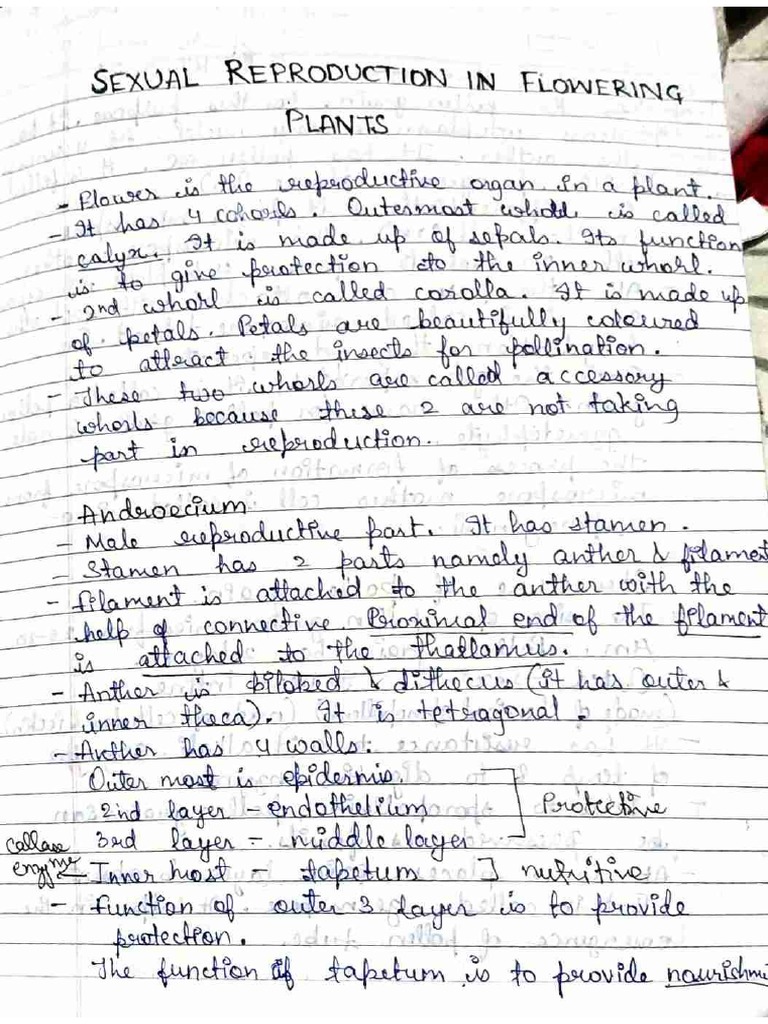 SEXUAL REPRODUCTION IN FLOWERING
PLANTS
- Flower is the reproductive organ in a plant.
- It has 4 whorls. Outermost whorl is called
calyx. It is made up of sepals. Its function
is to give protection to the inner whorl.
- 2nd whorl is called corolla. It is made up
of petals. Petals are beautifully coloured
to attract the insects for pollination.
- These two whorls are called accessory
whorls because these 2 are not taking
part in reproduction.
Androecium
- Male reproductive part. It has stamen.
- Stamen has 2 parts namely anther & filament
- filament is attached to the anther with the
help of connective. Proximal end of the filament
is attached to the thallamus.
- Anther is bilobed & dithecus (it has outer &
inner theca). It is tetragonal.
- Anther has 4 walls:
Outer most is epidermis
2nd layer - endothelium
Protective
3rd layer - middle layer
callase
enzyme
Inner most - tapetum ] nutritive
- function of outer 3 layer is to provide
protection.
The function of tapetum is to provide nourishm